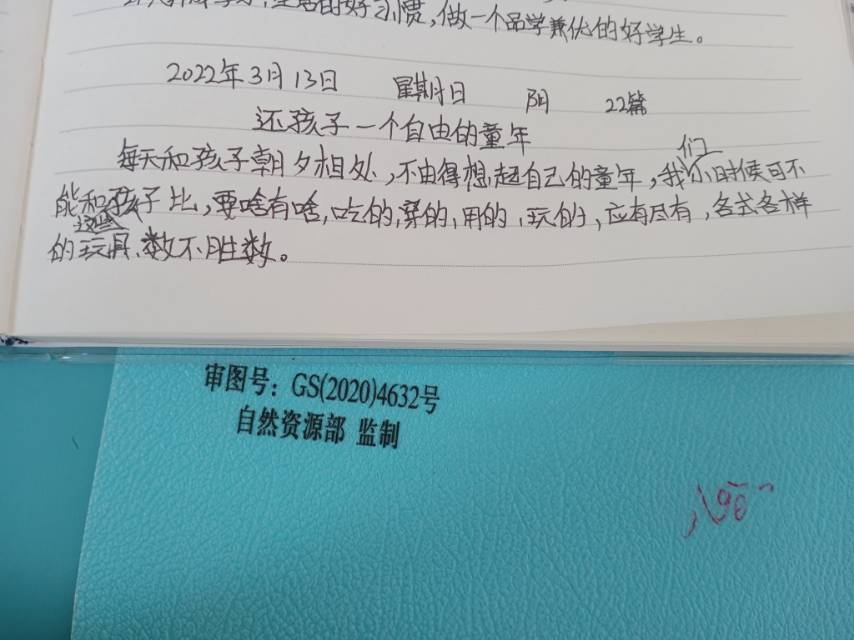 好习惯,做一个品学兼优的好学生。
2022年3月13日 星期日 阴 22篇
还孩子一个自由的童年
每天和孩子朝夕相处,不由得想起自己的童年,我们小时候可不
能和孩子比,要啥有啥,吃的,穿的,用的,玩的,应有尽有,各式各样
的玩具,数不胜数。
审图号:GS(2020)4632号
自然资源部 监制